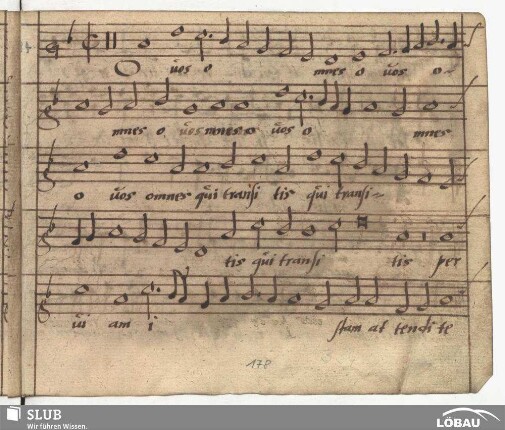 O vos o mnes o vos o-
mnes o vos mnes o vos o mnes
o vos omnes qui transi tis qui transi-
tis qui transi tis per
vi am i stam at tendi te
178
SLUB
Wir führen Wissen.
LÖBAU